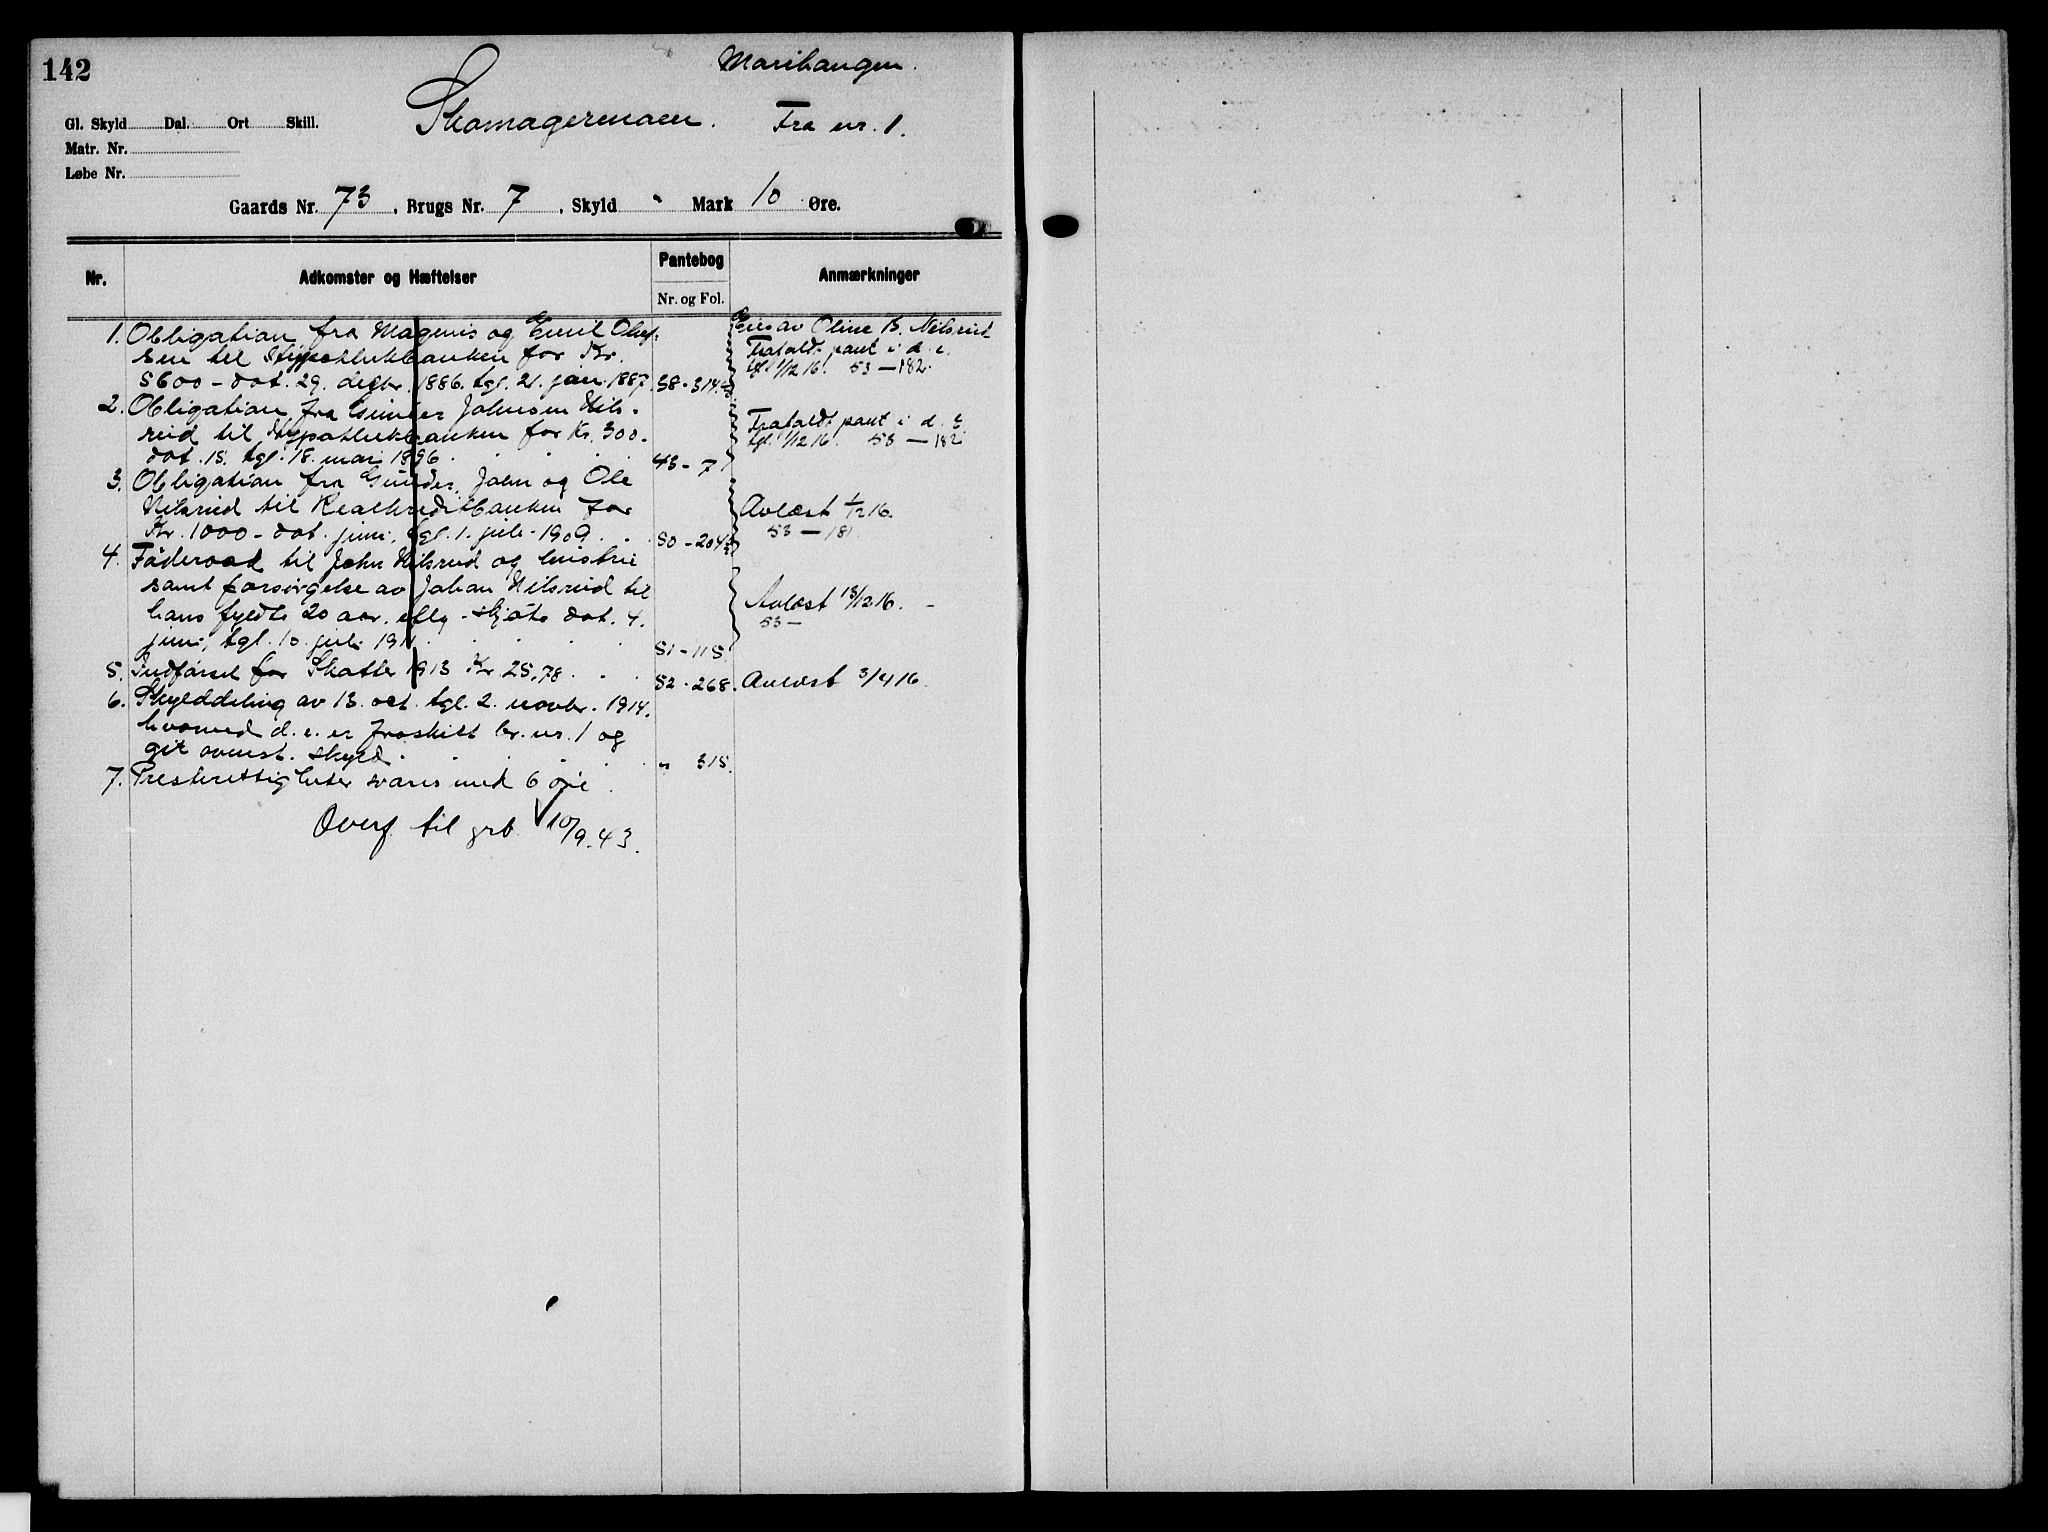 142
Marihaugen.
Skomagermoen. Fra nr. 1.
Gl. Skyld Dal. Ort Skill.
Matr. Nr.
Løbe Nr.
Gaards Nr. 73, Brugs Nr. 7, Skyld " Mark 10 Øre.
Nr. Adkomster og Hæftelser Pantebog Anmærkninger
Nr. og Fol.
1. Obligation fra Magnus og Emil Olef- Eies av Oline B. Nilsrud
sen til Hypothekbanken for Kr. Frafaldt pant i d. e.
5600 - dat. 29. decbr. 1886. tgl. 21. jan. 1887. 38-314. tgl. 1/12 16. 53-182.
2. Obligation fra Gunder Johnsen Nils-
rud til Hypothekbanken for Kr. 300. Frafaldt pant i d. E.
dat. 15. tgl. 18. mai 1896. 43-7 tgl. 1/12 16. 53-182
3. Obligation fra Gunder, John og Ole
Nilsrud til Realkreditbanken for Avlæst 1/12 16.
Kr. 1000 - dat. juni, tgl. 1. juli 1909. 50-204 53-181
4. Føderaad til John Nilsrud og hustru
samt forsørgelse av Johan Nilsrud til
hans fyldte 20 aar. eflg. skjøte dat. 4. Avlæst 13/12 16. -
juni, tgl. 10. juli 1911. 51-115 53-
5. Indførsel for Skatter 1913 Kr. 25,78. 52-268. Avlæst 3/4 16.
6. Skylddeling av 13. oct. tgl. 2. novbr. 1914.
hvorved d. e. er fraskilt br. nr. 1 og
git ovenst. skyld. " 315.
7. Presterettigheter svares med 6 øre.
Overf. til grb. 10/9.43.